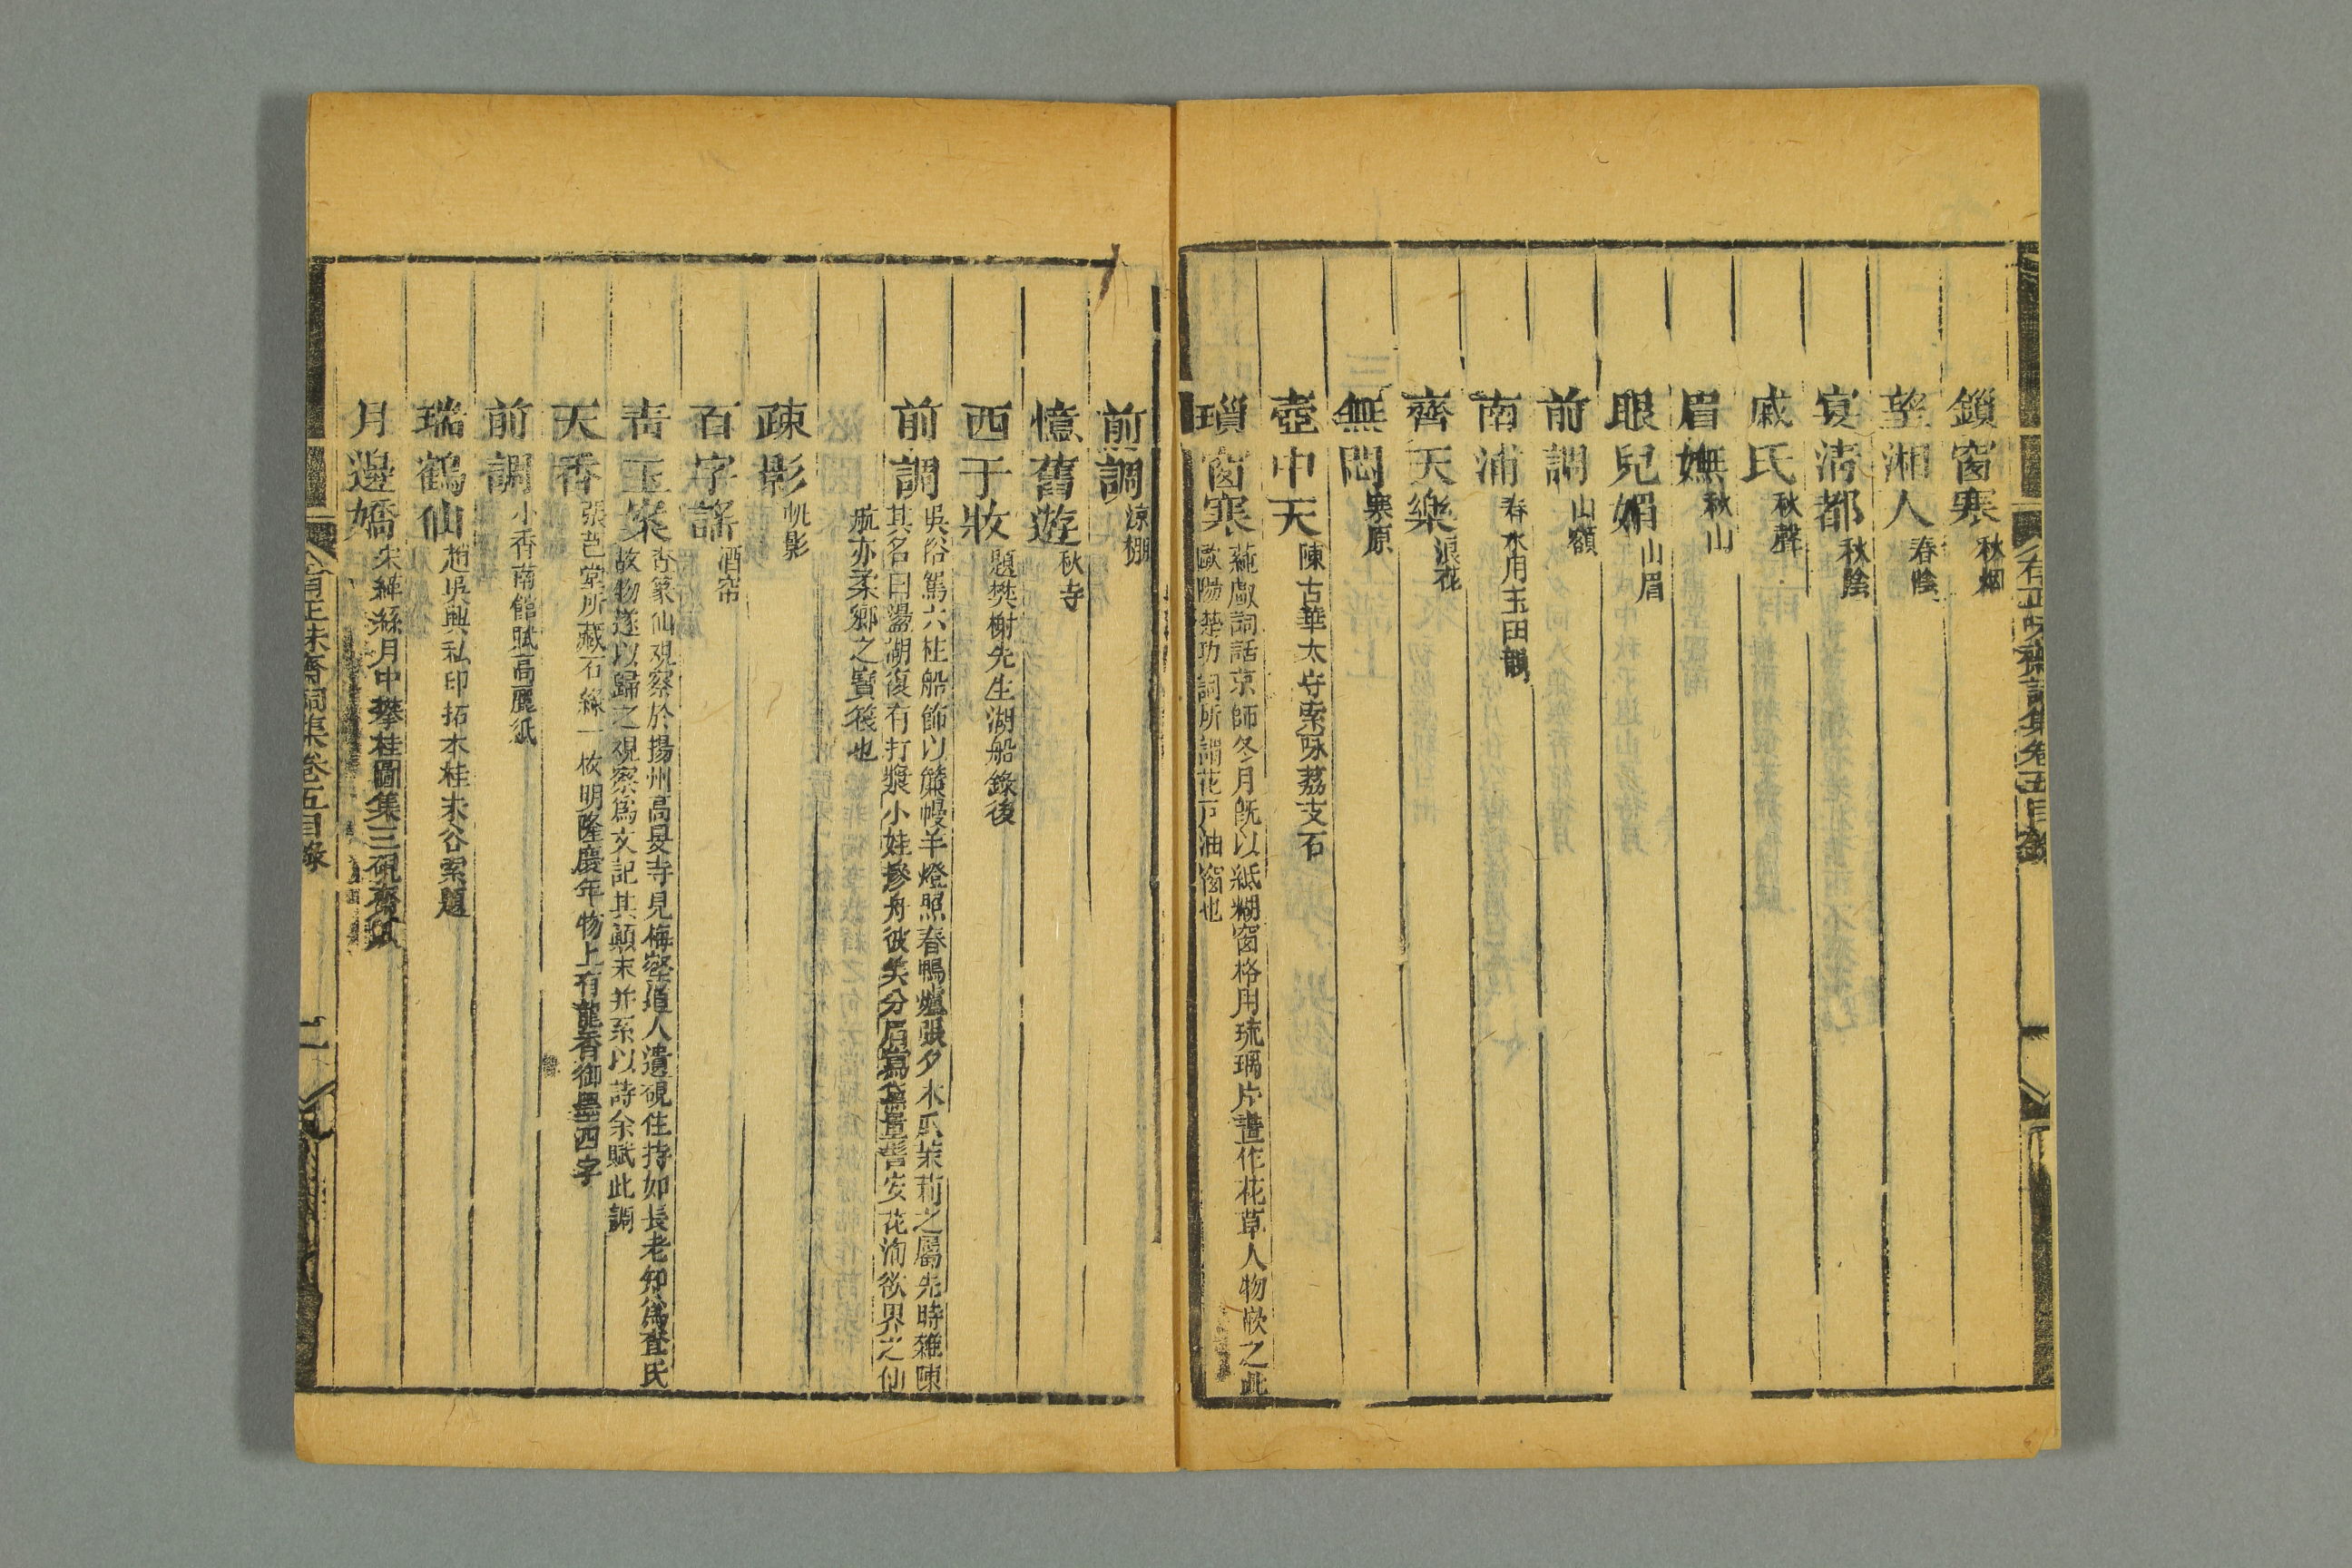 有正味齋詞集卷五目錄
鎖窗寒 秋烟
望湘人 春陰
宴清都 秋陰
戚氏 秋聲
眉嫵 秋山
眼兒媚 山眉
前調 山額
南浦 春水用玉田韻
齊天樂 浪花
無悶 寒原
壺中天 陳古華太守索咏荔支石
瑣窗寒 蓴廬詞話京師冬月旣以紙糊窗格用琉璃片畫作花草人物嵌之此
歐陽楚功詞所謂花戸油窗也
前調 涼棚
憶舊遊 秋寺
西于妝 題樊榭先生湖船錄後
前調 吳俗駕六柱船飾以簾幔羊燈照春鴨爐張夕木瓜茉莉之屬先時雜陳
其名曰盪湖復有打槳小娃撥舟彼美分眉當黛量髻安花洵欲界之仙
航亦柔鄉之寶筏也
疎影 帆影
百字謠 酒帘
靑玉案 杏篆仙觀察於揚州高旻寺見梅壑道人遺硯住持如長老知爲查氏
故物遂以歸之觀察爲文記其顛末并系以詩余賦此調
天香 張芑堂所藏石綠一枚明隆慶年物上有龍香御墨四字
前調 小香南館賦高麗紙
瑞鶴仙 趙吳興私印拓本桂未谷索題
月邊嬌 宋緙絲月中攀桂圖集三硯齋賦
有正味齋詞集卷五目錄
二